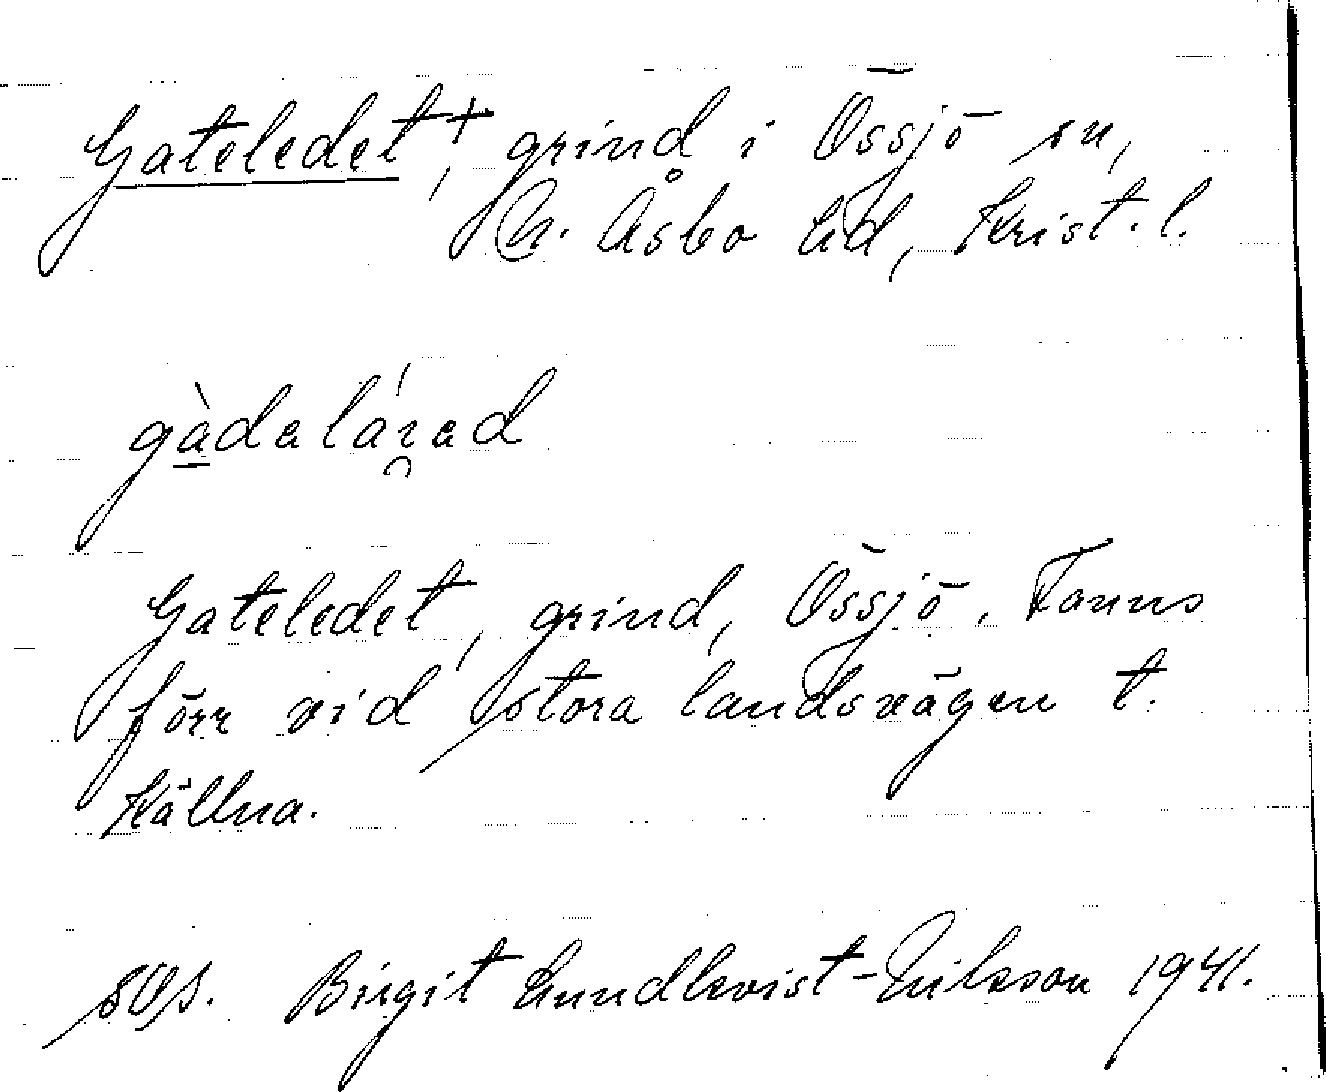 Gateledet+, grind i Össjö sn,
N. Åsbo hd, Krist. l.
gàdaláʀ̯ad
Gateledet, grind, Össjö. Fanns
förr vid stora landsvägen t.
Källna.
Birgit Lundkvist-Nilsson 1941.